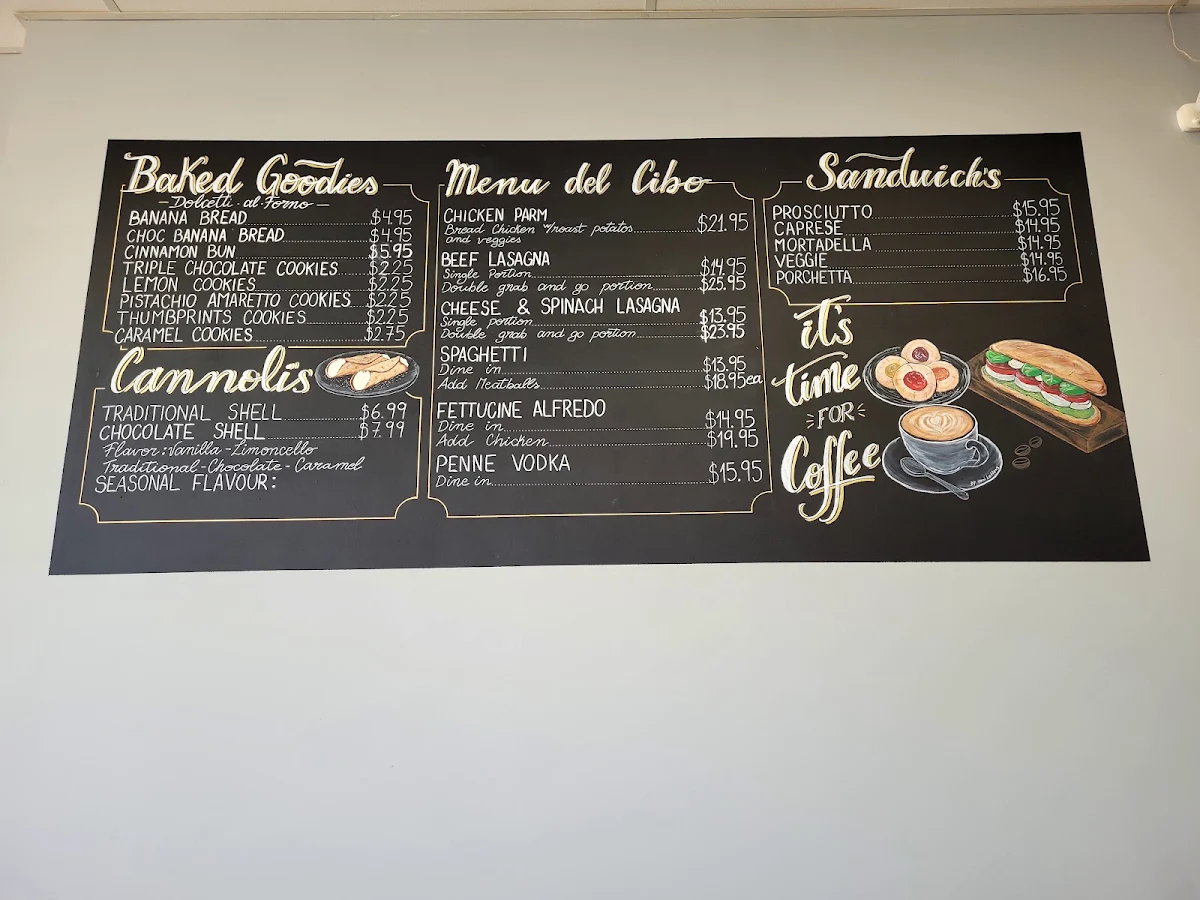 Baked Goodies
- Dolcetti al Forno -
BANANA BREAD $4.95
CHOC BANANA BREAD $4.95
CINNAMON BUN $5.95
TRIPLE CHOCOLATE COOKIES $2.25
LEMON COOKIES $2.25
PISTACHIO AMARETTO COOKIES $2.25
THUMBPRINTS COOKIES $2.25
CARAMEL COOKIES $2.75
Cannolis
TRADITIONAL SHELL $6.99
CHOCOLATE SHELL $7.99
Flavor: Vanilla - Limoncello
Traditional - Chocolate - Caramel
SEASONAL FLAVOUR:
Menu del Cibo
CHICKEN PARM
Bread Chicken roast potatos $21.95
and veggies
BEEF LASAGNA
Single Portion $14.95
Double grab and go portion $25.95
CHEESE & SPINACH LASAGNA
Single portion $13.95
Double grab and go portion $23.95
SPAGHETTI
Dine in $13.95
Add Meatballs $18.95ea
FETTUCINE ALFREDO
Dine in $14.95
Add Chicken $19.95
PENNE VODKA
Dine in $15.95
Sandwich's
PROSCIUTTO $15.95
CAPRESE $14.95
MORTADELLA $14.95
VEGGIE $14.95
PORCHETTA $16.95
it's
time
FOR
Coffee